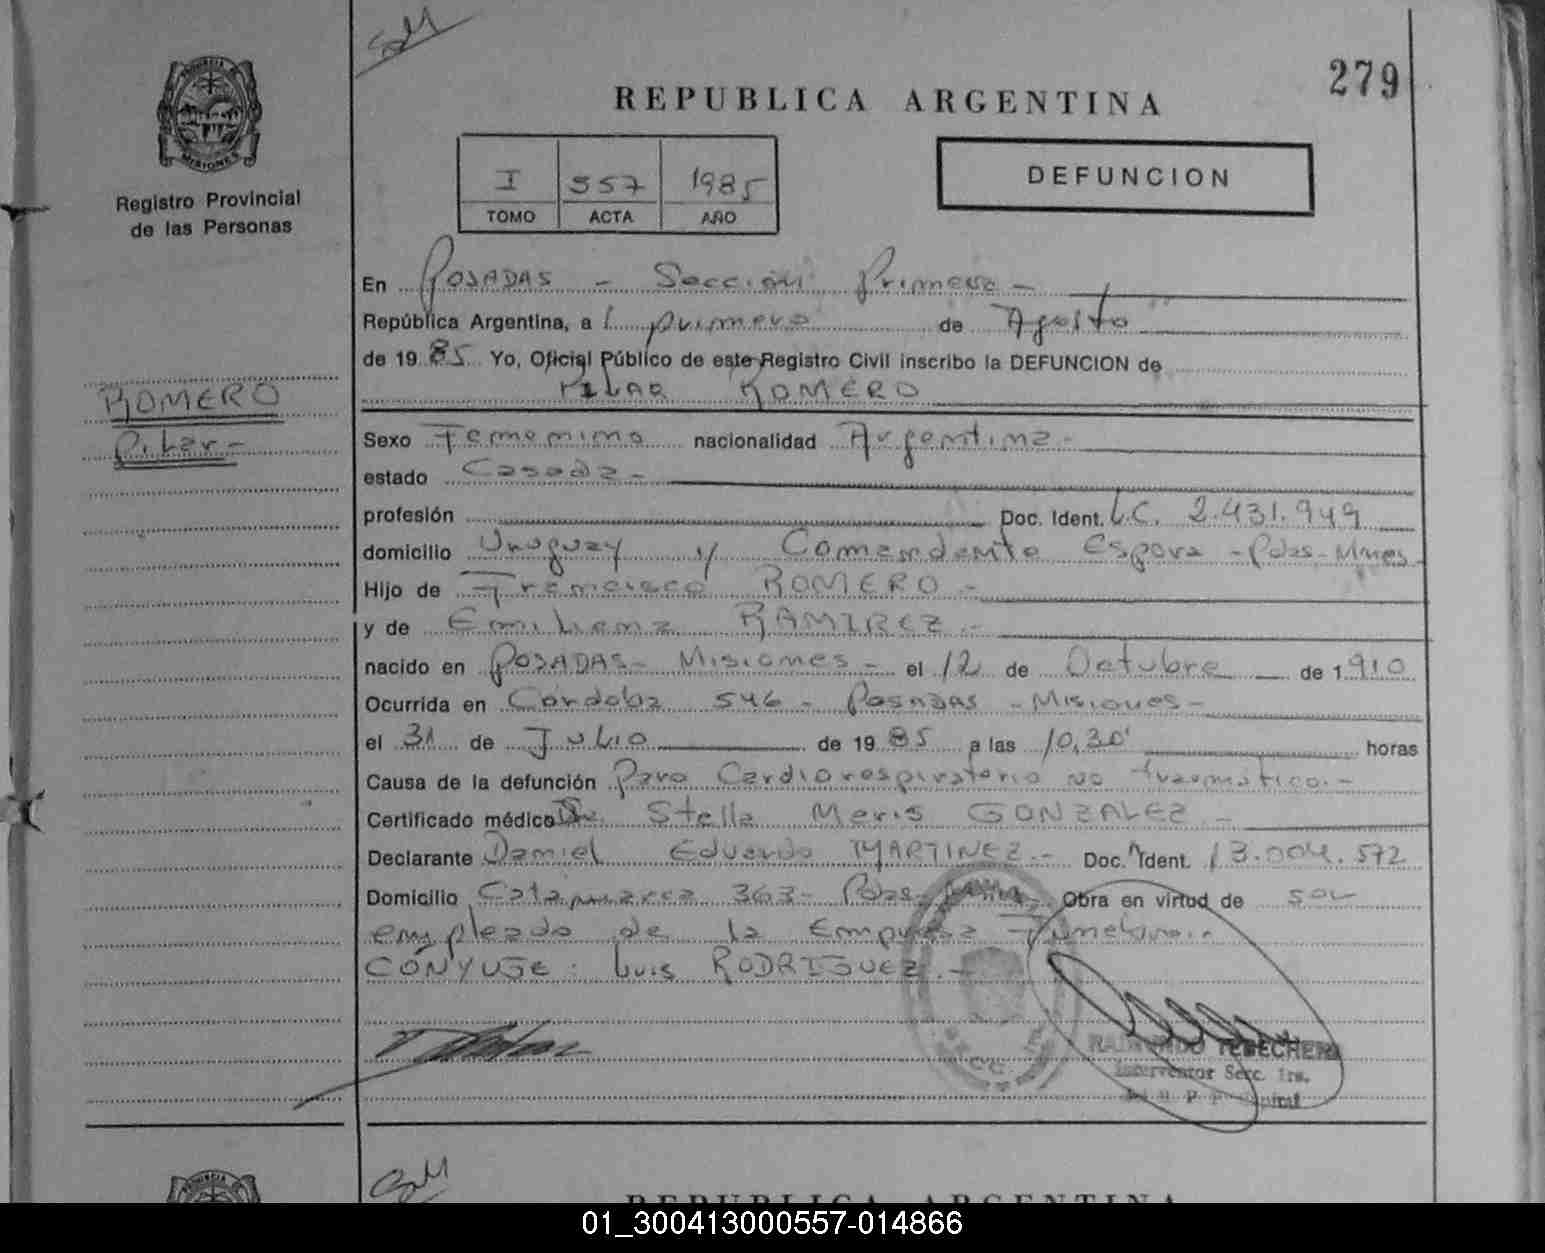 279
PROVINCIA DE
MISIONES
Registro Provincial
de las Personas
REPUBLICA ARGENTINA
DEFUNCION
I 557 1985
TOMO ACTA AÑO
En POSADAS - Sección Primera -
República Argentina, a l primero de Agosto
de 1985 Yo, Oficial Público de este Registro Civil inscribo la DEFUNCION de
PILAR ROMERO
ROMERO
Pilar -
Sexo Femenino nacionalidad Argentina -
estado Casada -
profesión Doc. Ident. L.C. 2.431.949
domicilio Uruguay y Comandante Espora - Pdas - Mnes
Hijo de Francisco ROMERO -
y de Emiliana RAMIREZ -
nacido en POSADAS - Misiones - el 12 de Octubre de 1910
Ocurrida en Córdoba 546 - Posadas - Misiones -
el 31 de Julio de 1985 a las 10,30' horas
Causa de la defunción Paro Cardiorespiratorio no traumático. -
Certificado médico Stella Maris GONZALEZ -
Declarante Daniel Eduardo MARTINEZ - Doc. Ident. 13.004.572
Domicilio Catamarca 363 - Pdas - Obra en virtud de ser
empleado de la Empresa Funebre.
CONYUGE: Luis RODRIGUEZ. -
TEBECHERI
Interventor Secc. 1ra.
REPUBLICA ARGENTINA
01_300413000557-014866